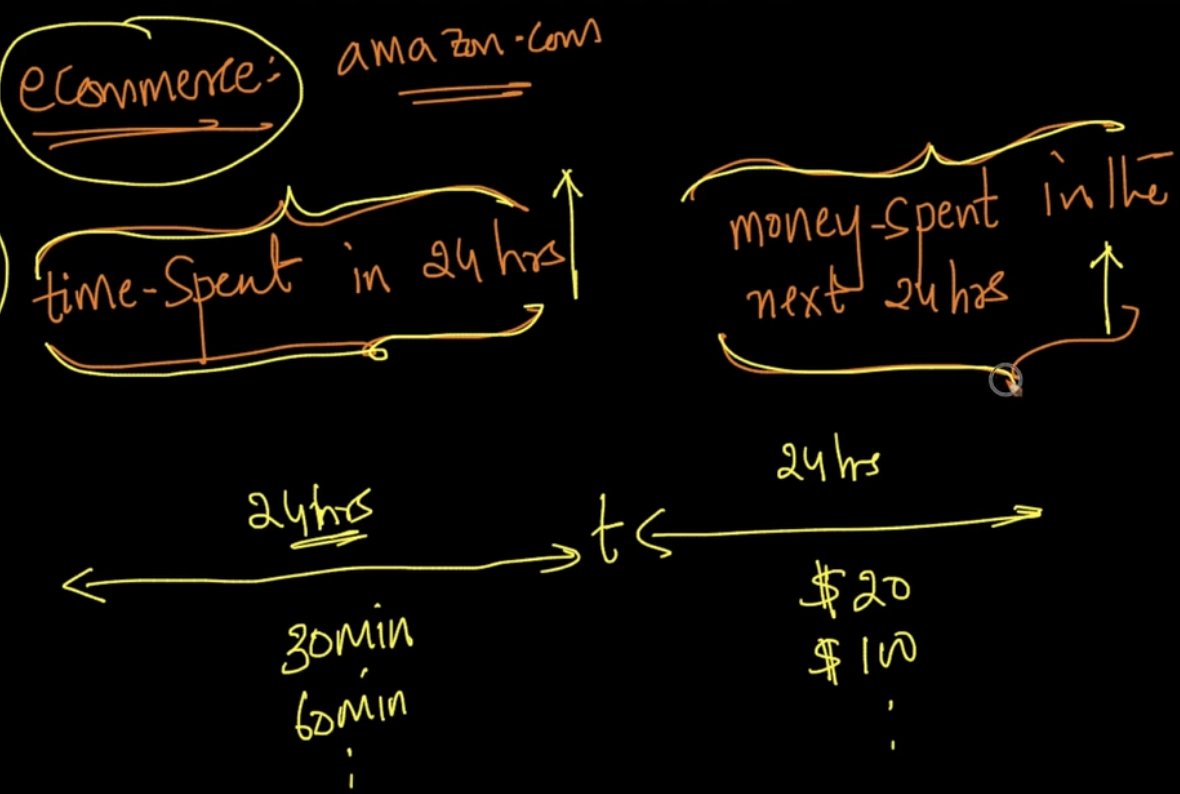 ecommerce: amazon.com
time-spent in 24 hrs
money-spent in the
next 24 hrs
24 hrs
t
24 hrs
30min
60min
$20
$100